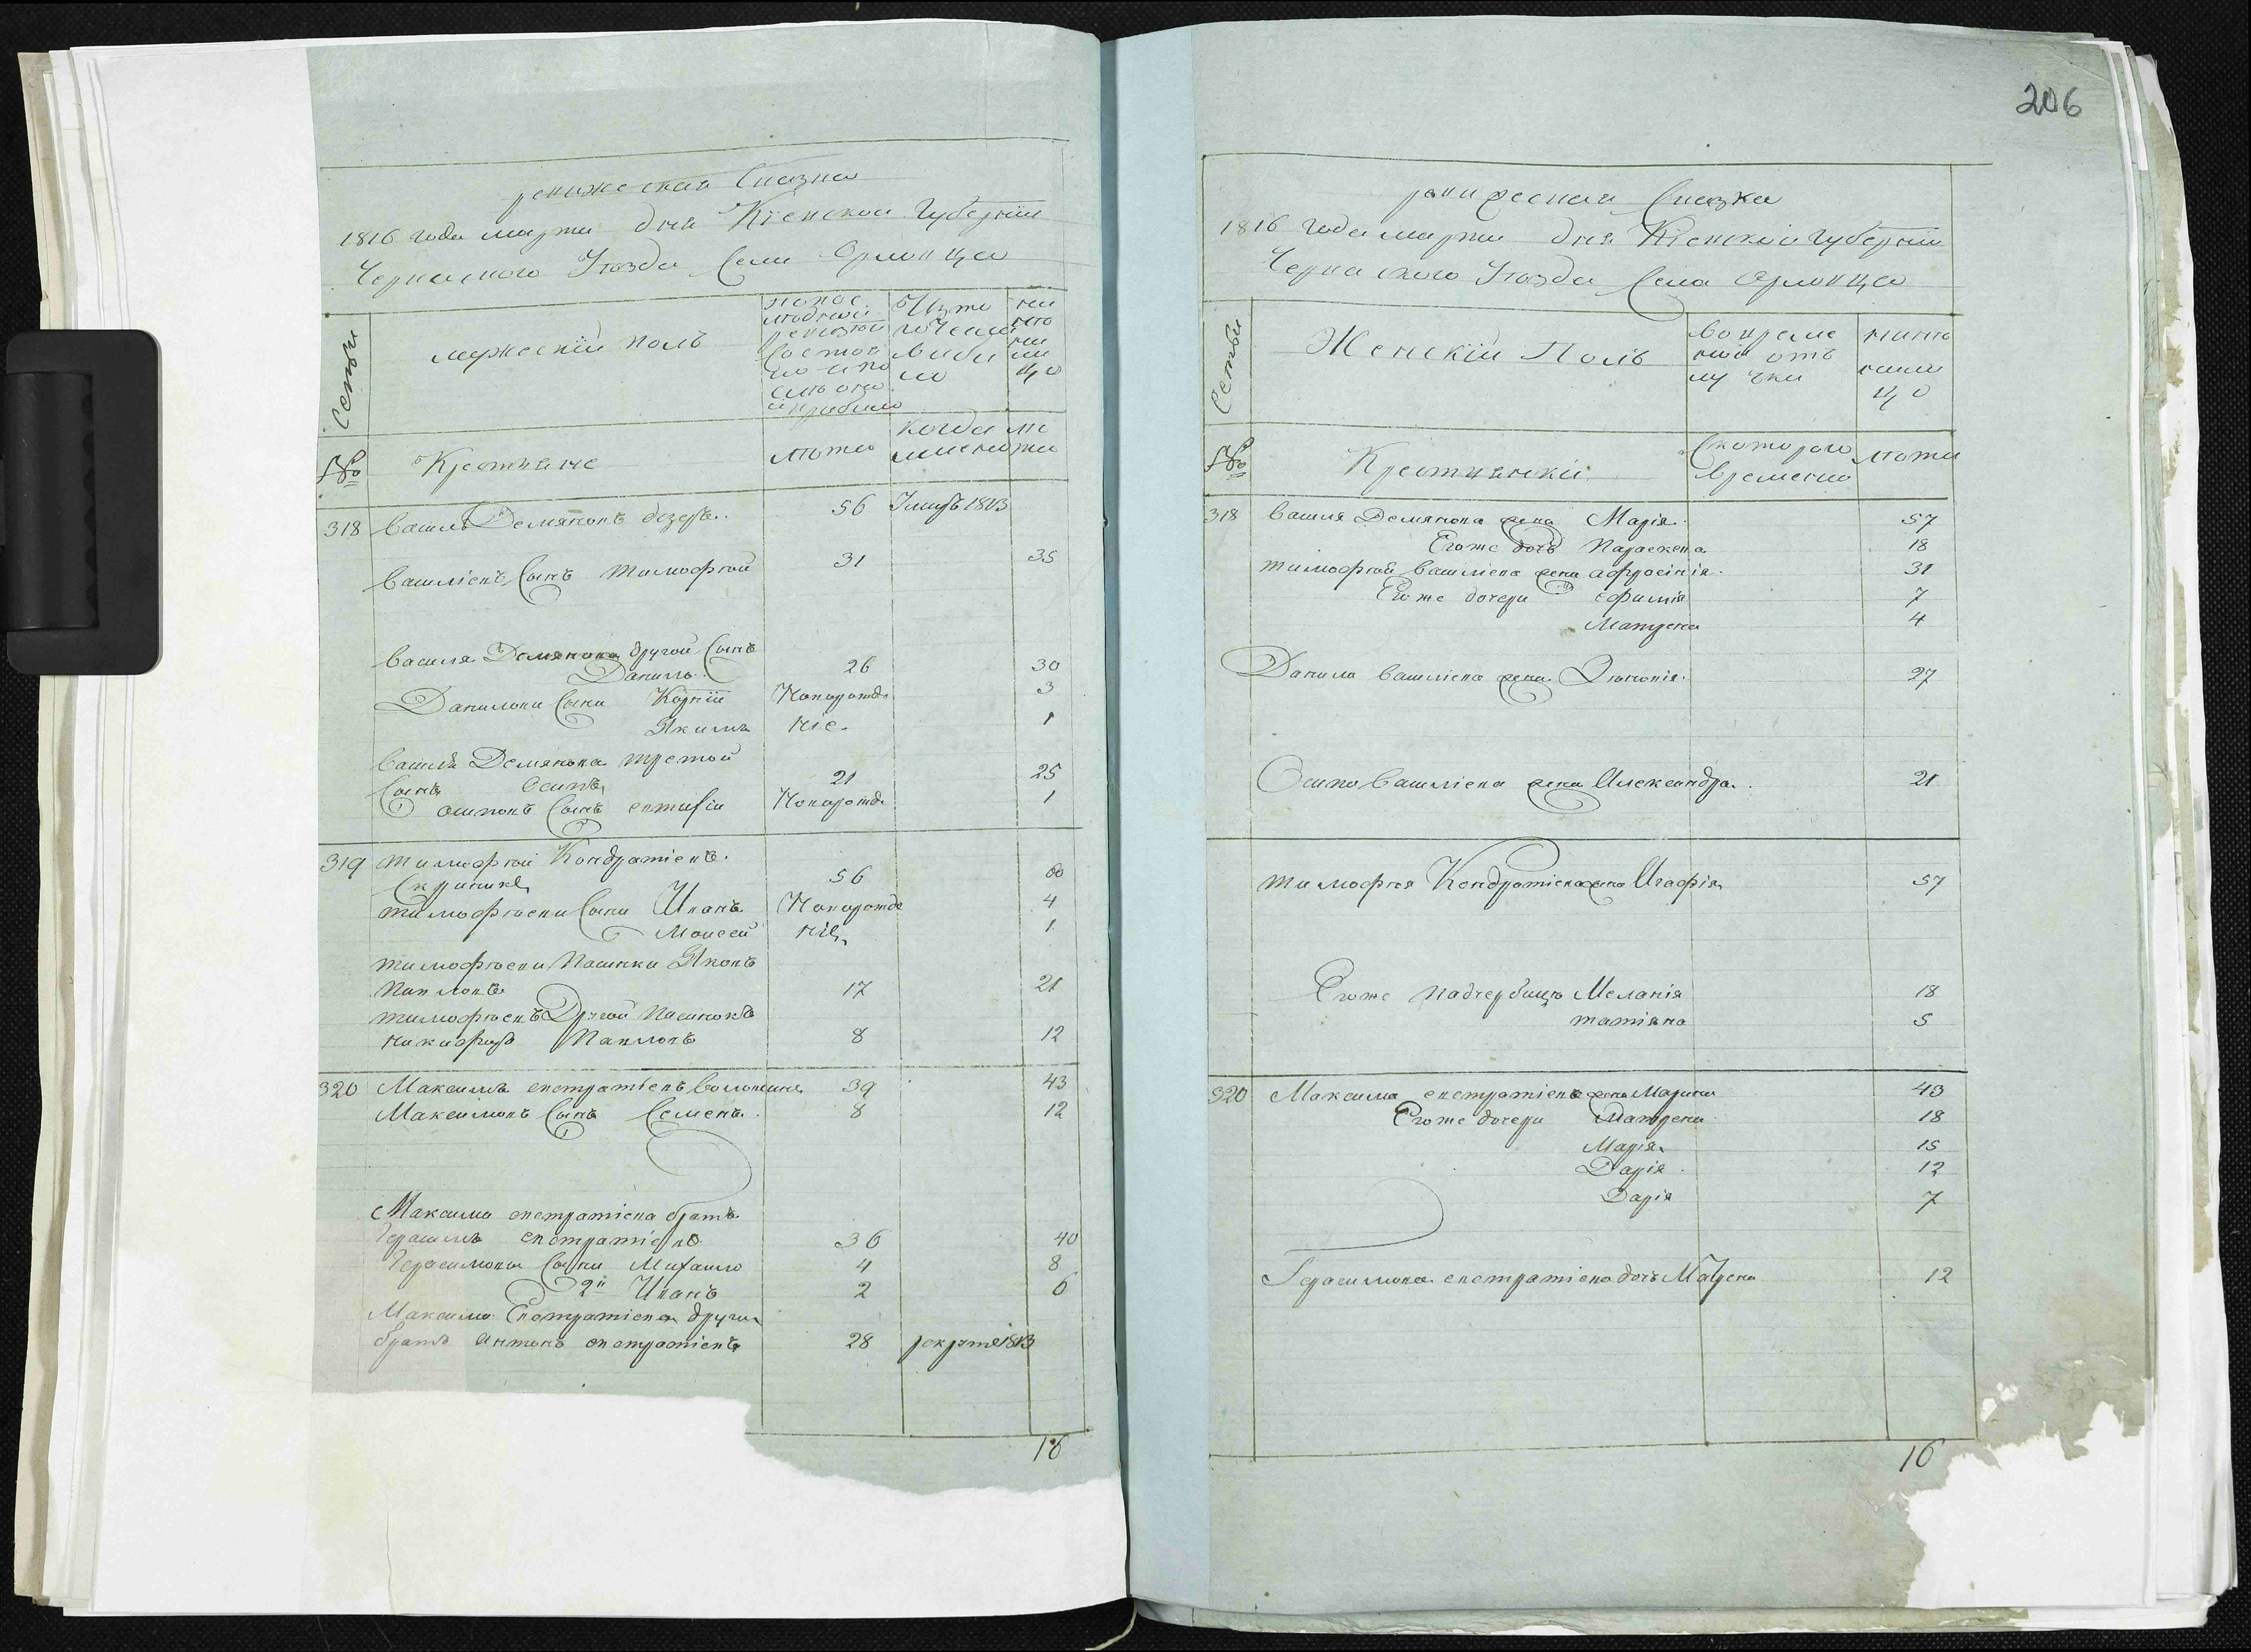 206
ревижеская Сказка
1816 года марта дня Кіевской Губерніи
Черкаского Уѣзда Села Орловца
Семьи
мужескій полъ
по пос
лѣдной
ревизіи
состоя
ло и по
слѣ она
и прибыло
Изто
го числа
выбы
ло
ны
нѣ
на
ли
цо
№
Крестьяне
лѣта
когда
именно
лѣ
та
318 Василь Демяновъ 56 Умеръ 1813
Василіевъ Сынъ Тимофѣй 31 35
Василя Демянова другой Сынъ
Данило 26 30
Даниловы Сыны Корній Новорожде 3
Якимъ ніе 1
Василя Демянова третой
Сынъ Осипъ 21 25
Осиповъ Сынъ Евтифій Новорожд 1
319 Тимофѣй Кондратіевъ
Скрипикъ 56 60
Тимофѣеви Сыны Иванъ Новорожде 4
Моисей ніе 1
Тимофѣеви Пасинки Яковъ
Павловъ 17 21
Тимофѣевъ Другой Пасинокъ
Никифоръ Павловъ 8 12
320 Максимъ евстратіевъ Волошинъ 39 43
Максимовъ Сынъ Семенъ 8 12
Максима евстратіева братъ
Герасимъ евстратіевъ 36 40
Герасимовы Сыны Михайло 4 8
2й Иванъ 2 6
Максима Евстратіева други
братъ Антонъ евстратіевъ 28 рекрутъ 1813
16
ревизеская Сказка
1816 года марта дня Кіевской Губерніи
Черкаского Уѣзда Села Орловца
Семьи
Женскій Полъ
Во време
ной отъ
лу чки
нынѣ
нали
цо
№
Крестьянкіи
Скоторого
времено
лѣта
318 Василя Демянова жена Марія 57
Егоже дочь Параскева 18
Тимофѣй Василіева жена Афросінія 31
Егоже дочери Ефимія 7
Матрена 4
Данила Василіева жена 27
Осипо Василіева жена Александра 21
Тимофѣя Кондратіева жена Агафія 57
Егоже падчербицѣ Меланія 18
татіяна 5
320 Максима евстратіевъ жена Марина 43
Егоже дочери Матрена 18
Марія 15
Дарія 12
Дарія 7
Герасимова евстратіева дочь Матрена 12
16